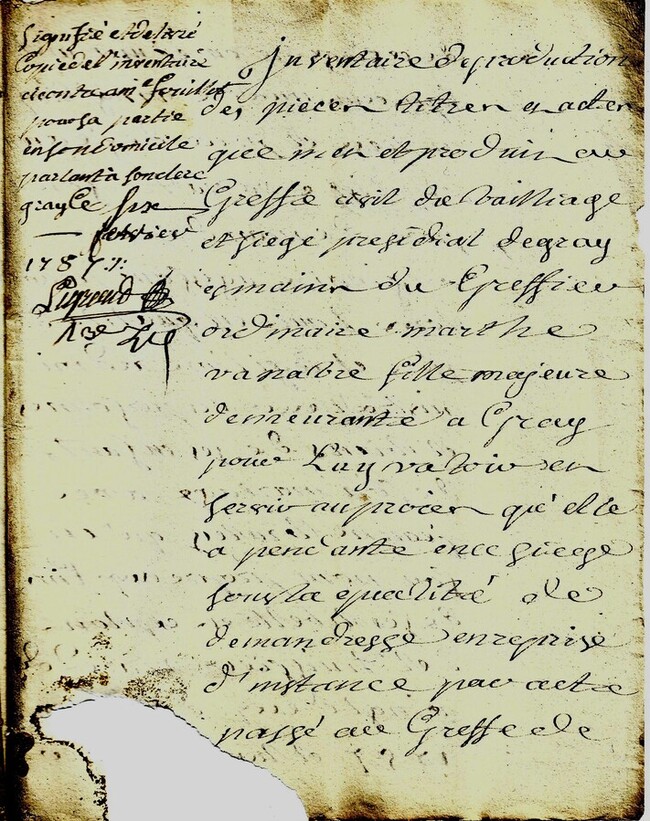 Signifié et delivré
Copie de l'inventaire
cicontre a me
pour sa partie
en son domicile
parlant a son clerc
gray Ce six
fevrier
1757 /.
Inventaire de production
des pieces titres et actes
que met et produit au
Greffe civil du bailliage
et siege presidial de gray
es mains du Greffier
ordinaire marthe
fille majeure
demeurante a Gray
pour Luy valoir en
servir au proces qu'elle
a pendante en ce siege
sous la qualité de
demandresse en reprise
d'instance par acte
passé au Greffe de